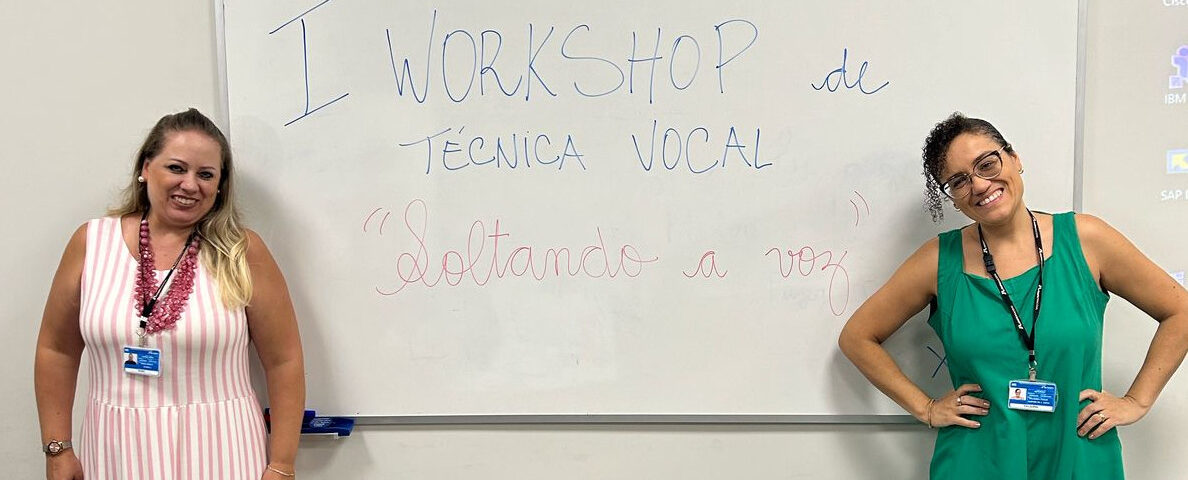 I WORKSHOP de
TÉCNICA VOCAL
"Soltando a voz"
IBM
SAP